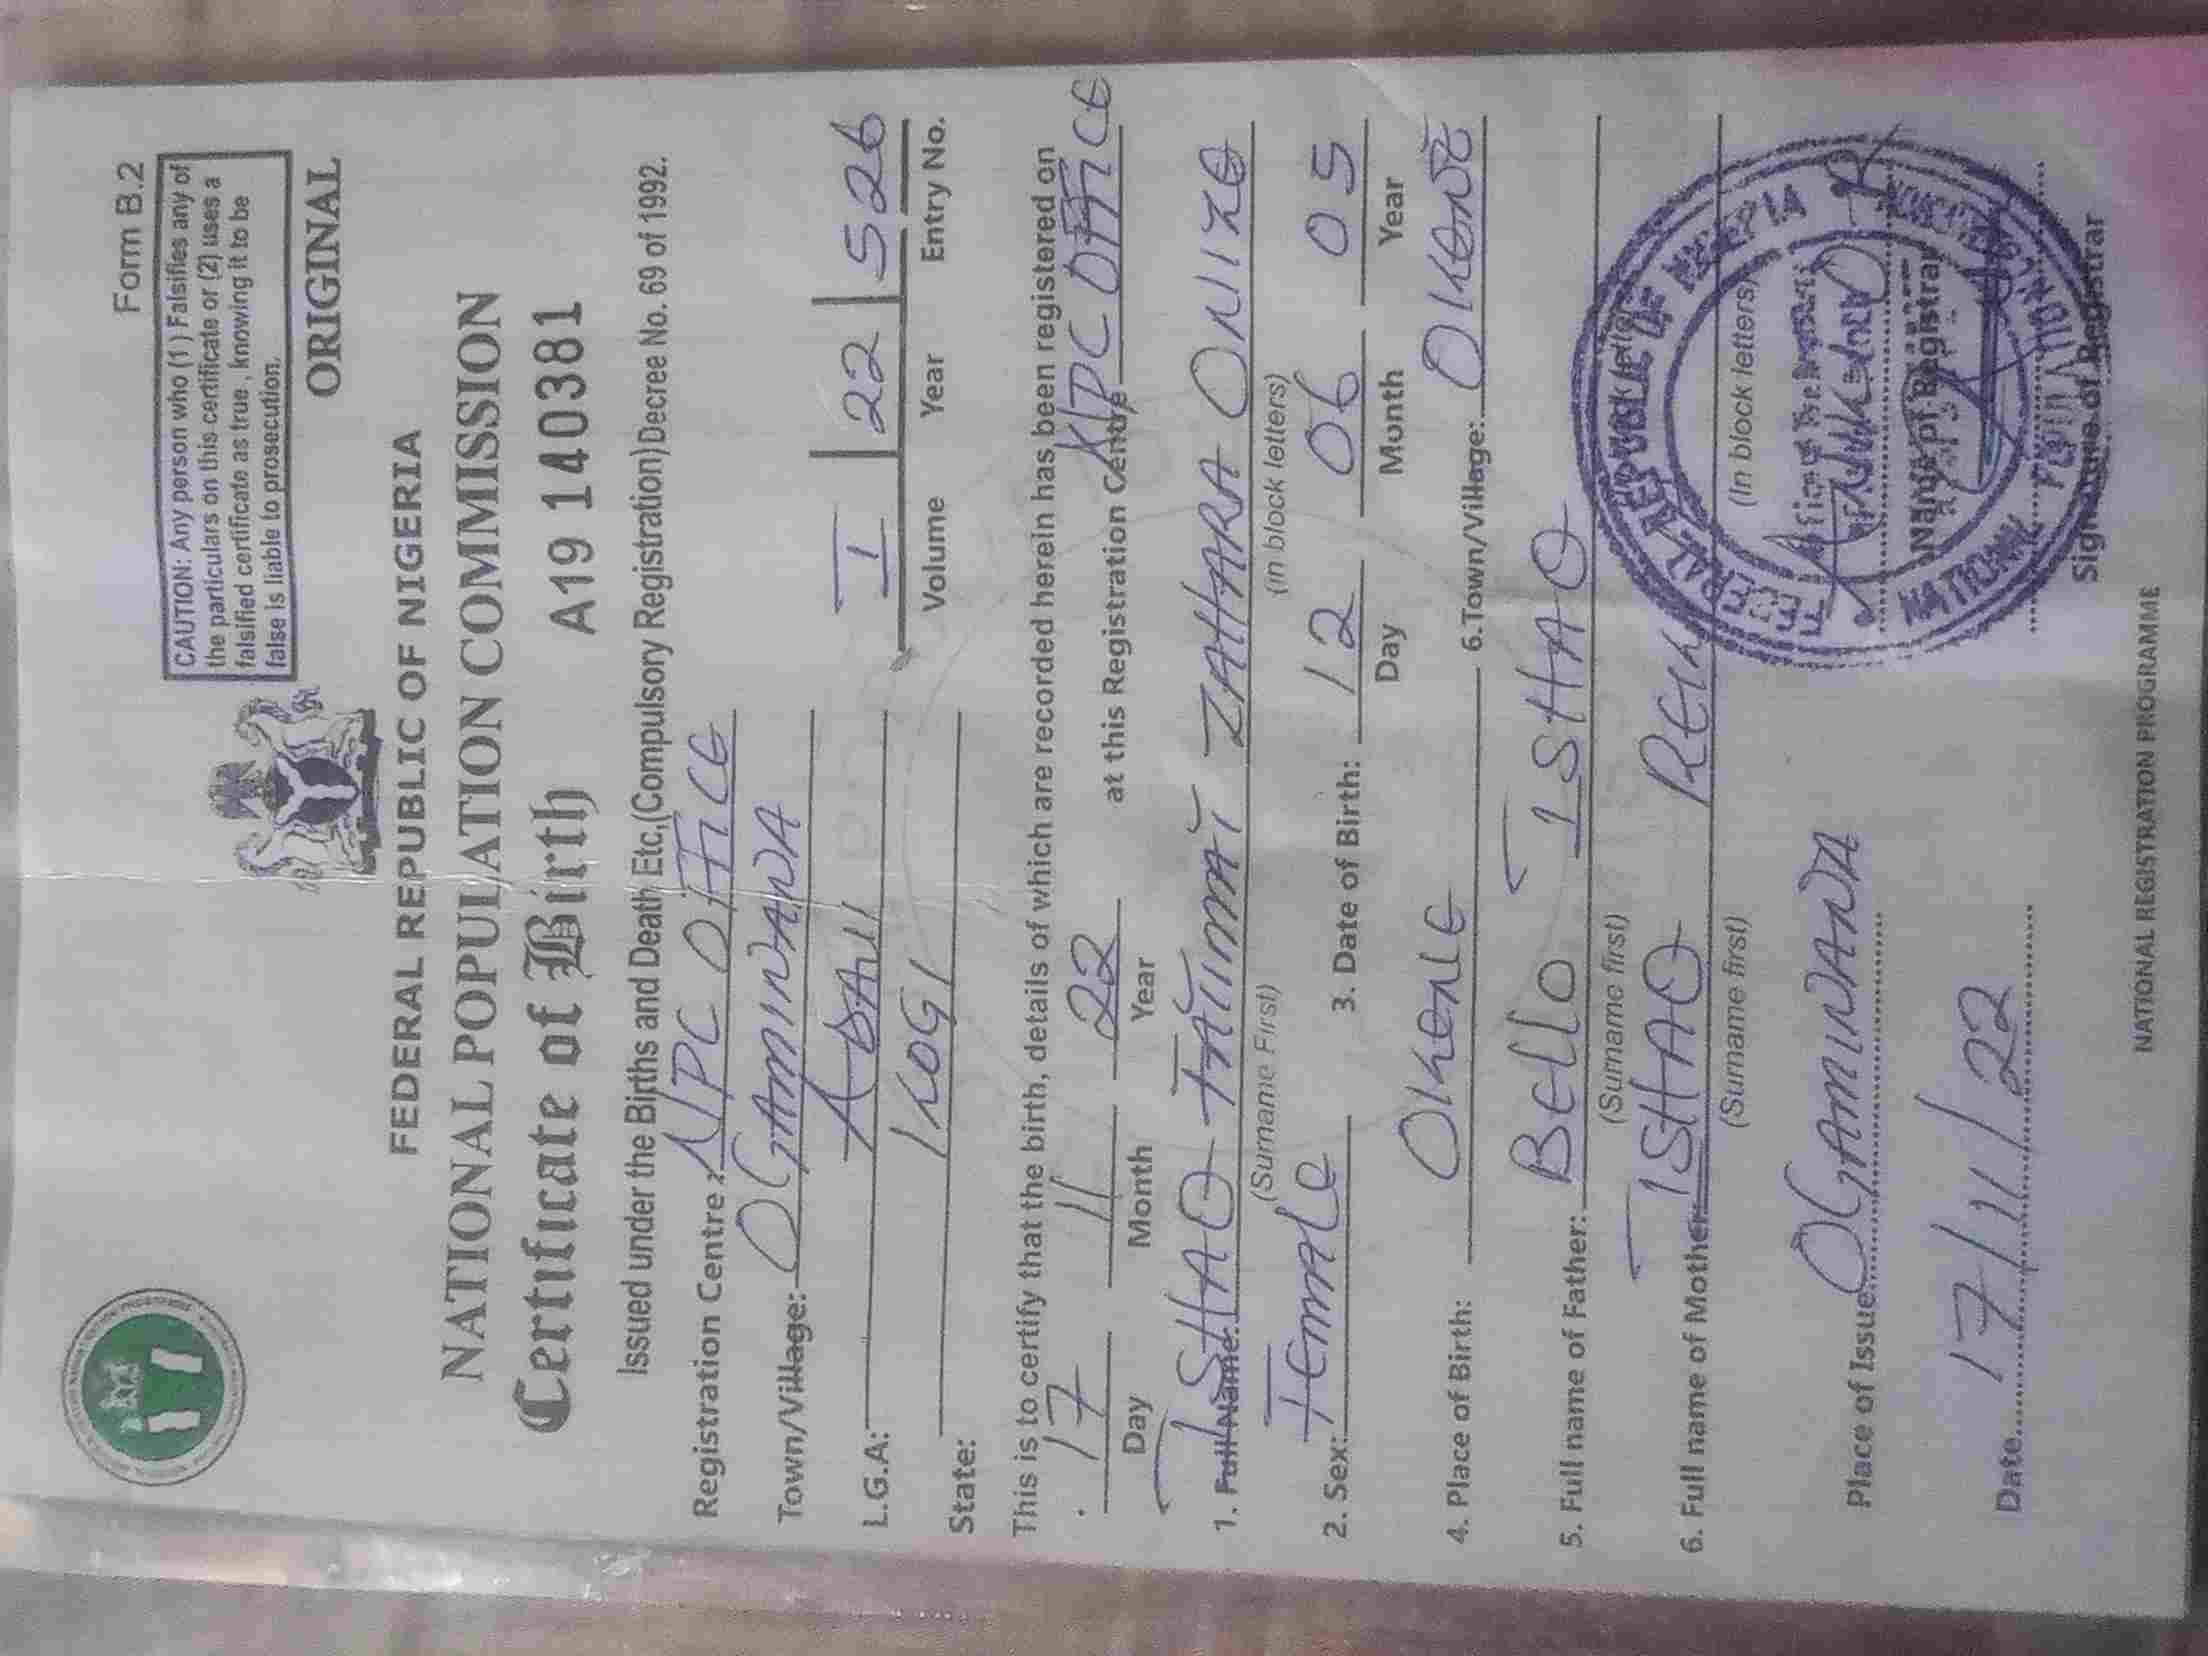 Form B.2
CAUTION: Any person who (1) Falsifies any of
the particulars on this certificate or (2) uses a
falsified certificate as true, knowing it to be
false is liable to prosecution.
ORIGINAL
FEDERAL REPUBLIC OF NIGERIA
NATIONAL POPULATION COMMISSION
Certificate of Birth A19 140381
Issued under the Births and Death Etc,(Compulsory Registration)Decree No. 69 of 1992.
Registration Centre: NPC OFFICE
Town/Village: OGAMINANA
L.G.A: ADAVI
State: KOGI
I 22 526
Volume Year Entry No.
This is to certify that the birth, details of which are recorded herein has been registered on
17 11 22 at this Registration Centre NPC OFFICE
Day Month Year
1. Full Name: ISHAQ FATIMAT ZAHARA ONIZE
(Surname First) (in block letters)
2. Sex: Female 3. Date of Birth: 12 06 05
Day Month Year
4. Place of Birth: OKENE 6.Town/Village: OKENE
5. Full name of Father: Bello ISHAQ
(Surname first)
6. Full name of Mother: ISHAQ
(Surname first) (In block letters)
FEDERAL REPUBLIC OF NIGERIA
Place of Issue OGAMINANA
Name of Registrar
NATIONAL
Date 17/11/22
Signature of Registrar
NATIONAL REGISTRATION PROGRAMME